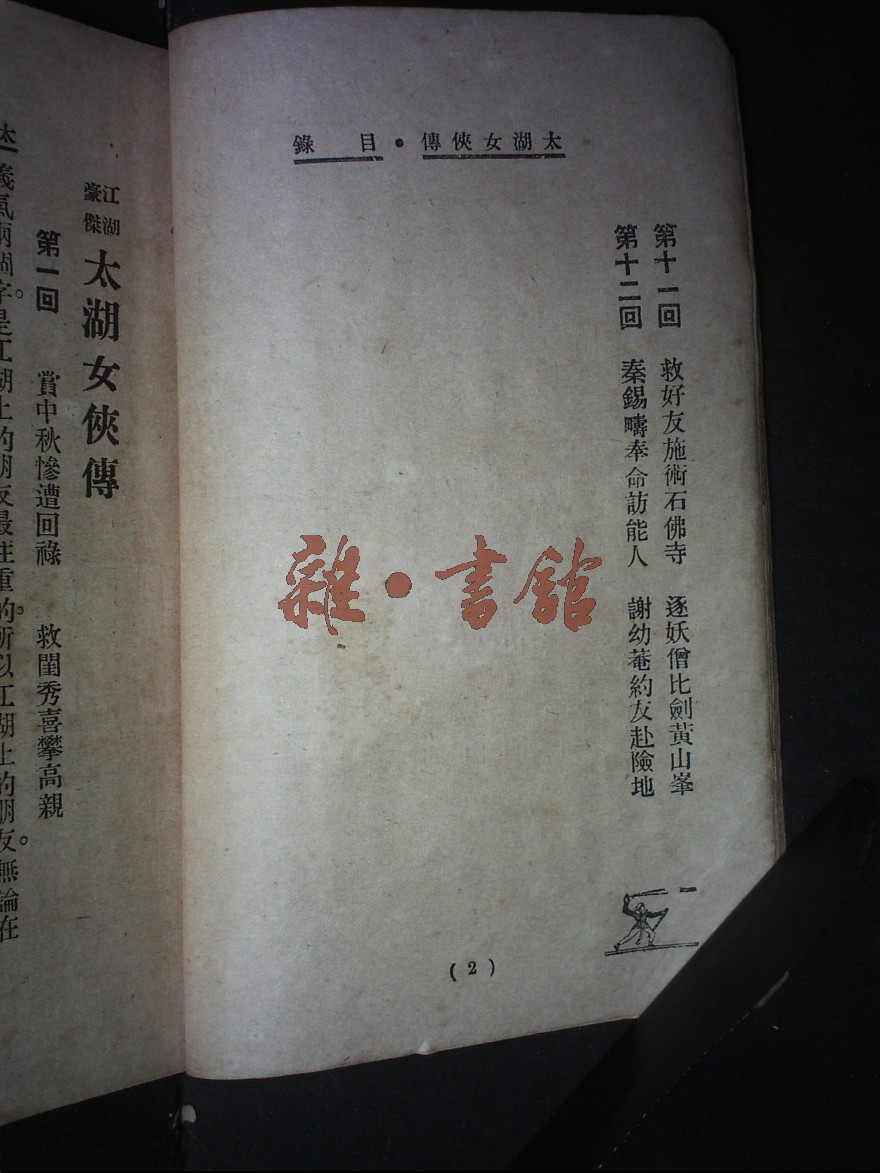 太湖女俠傳・目錄
第十一回 救好友施術石佛寺 逐妖僧比劍黃山峯
第十二回 秦錫疇奉命訪能人 謝幼菴約友赴險地
(2)
雜・書館
江湖豪傑
太湖女俠傳
第一回 賞中秋慘遭回祿 救閨秀喜攀高親
義氣兩個字。是江湖上的朋友最注重的。所以江湖上的朋友。無論在